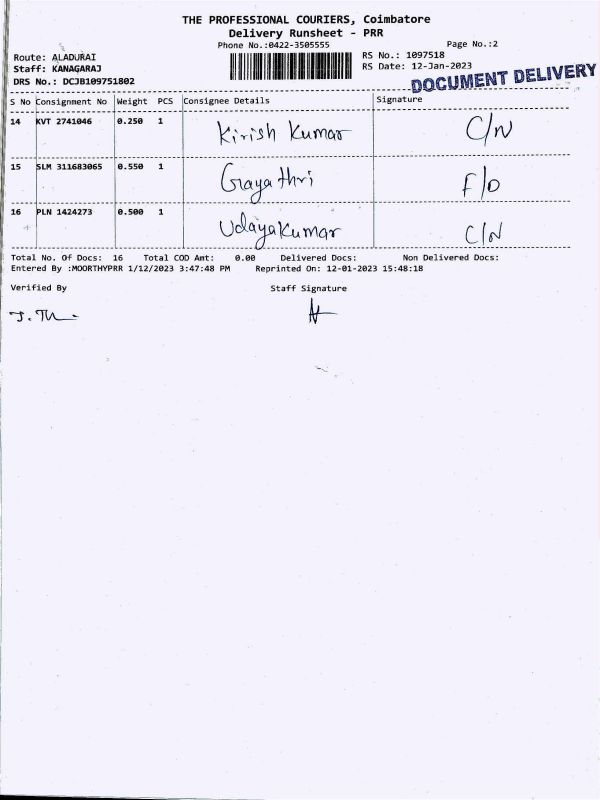 THE PROFESSIONAL COURIERS, Coimbatore
Delivery Runsheet - PRR
Phone No.:0422-3505555 Page No.:2
Route: ALADURAI RS No.: 1097518
Staff: KANAGARAJ RS Date: 12-Jan-2023
DRS No.: DCJB109751802 DOCUMENT DELIVERY
S No Consignment No Weight PCS Consignee Details Signature
14 KVT 2741046 0.250 1 Kirish Kumar C/N
15 SLM 311683065 0.550 1 Gayathri F/D
16 PLN 1424273 0.500 1 Udayakumar C/N
Total No. Of Docs: 16 Total COD Amt: 0.00 Delivered Docs: Non Delivered Docs:
Entered By :MOORTHYPRR 1/12/2023 3:47:48 PM Reprinted On: 12-01-2023 15:48:18
Verified By Staff Signature